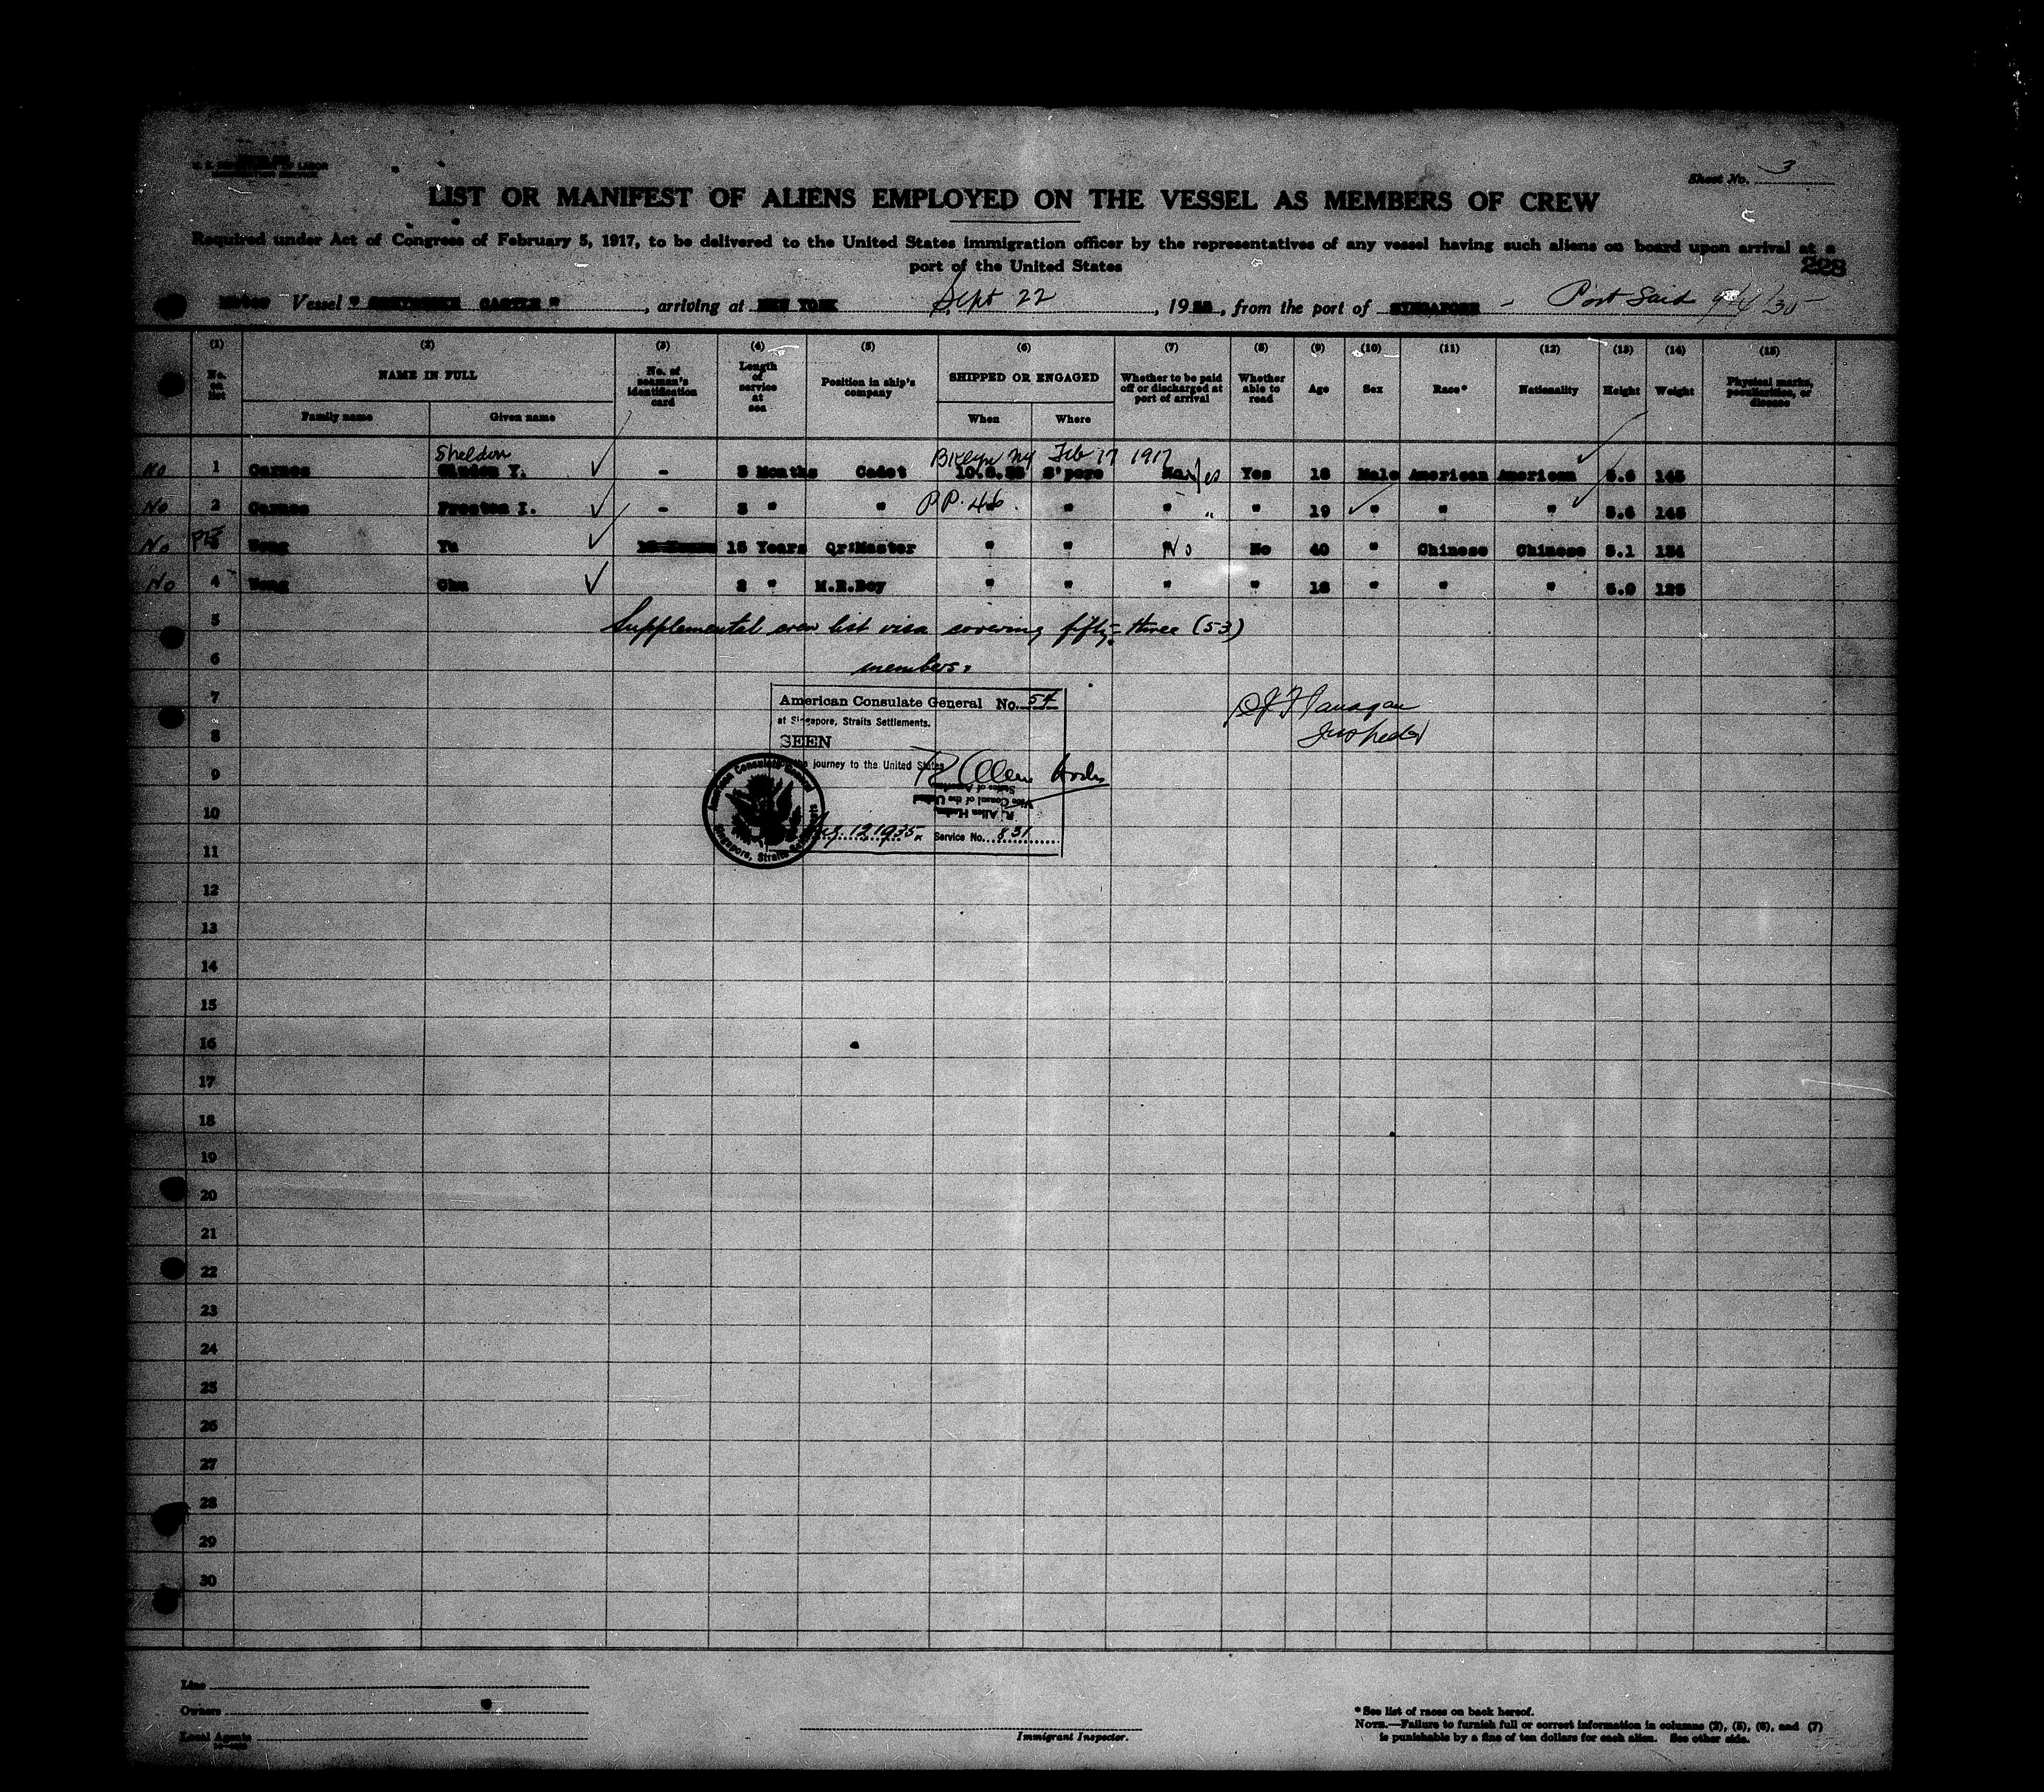 U. S. DEPARTMENT OF LABOR
Sheet No. 3
LIST OR MANIFEST OF ALIENS EMPLOYED ON THE VESSEL AS MEMBERS OF CREW
Required under Act of Congress of February 5, 1917, to be delivered to the United States immigration officer by the representatives of any vessel having such aliens on board upon arrival at a
port of the United States
228
Vessel " CASTLE ", arriving at NEW YORK Sept 22, 19, from the port of SINGAPORE - Port Said 9/4/35
(1) (2) (3) (4) (5) (6) (7) (8) (9) (10) (11) (12) (13) (14) (15)
No. on list NAME IN FULL No. of seaman's identification card Length of service at sea Position in ship's company SHIPPED OR ENGAGED Whether to be paid off or discharged at port of arrival Whether able to read Age Sex Race* Nationality Height Weight Physical marks, peculiarities, or disease
Family name Given name When Where
Sheldon Bklyn NY Feb 17 1917
No 1 Carnes Y. - 3 Months Cadet S'pore Yes Yes 18 Male American American 5.6 145
No 2 Carnes Preston I. - 3 " " P.P. 46. " " " " 19 " " " 5.6 145
No 3 Wong Yu 15 Years Qr:Master " " No No 40 " Chinese Chinese 5.1 134
No 4 Wong Chu 2 " M.R.Boy " " " " 18 " " " 5.0 125
5 Supplemental crew list visa covering fifty-three (53)
6 members.
7 American Consulate General No. 54
at Singapore, Straits Settlements.
P J Flanagan
Inspector
8 SEEN
journey to the United States
9
American Consulate General
Singapore, Straits Settlements
R. Allen
Vice Consul of the United States of America
10
Aug. 12 1935. Service No. 831
11
12
13
14
15
16
17
18
19
20
21
22
23
24
25
26
27
28
29
30
Line
Owners
Local Agents
Immigrant Inspector.
*See list of races on back hereof.
NOTE.—Failure to furnish full or correct information in columns (2), (5), (6), and (7)
is punishable by a fine of ten dollars for each alien. See other side.